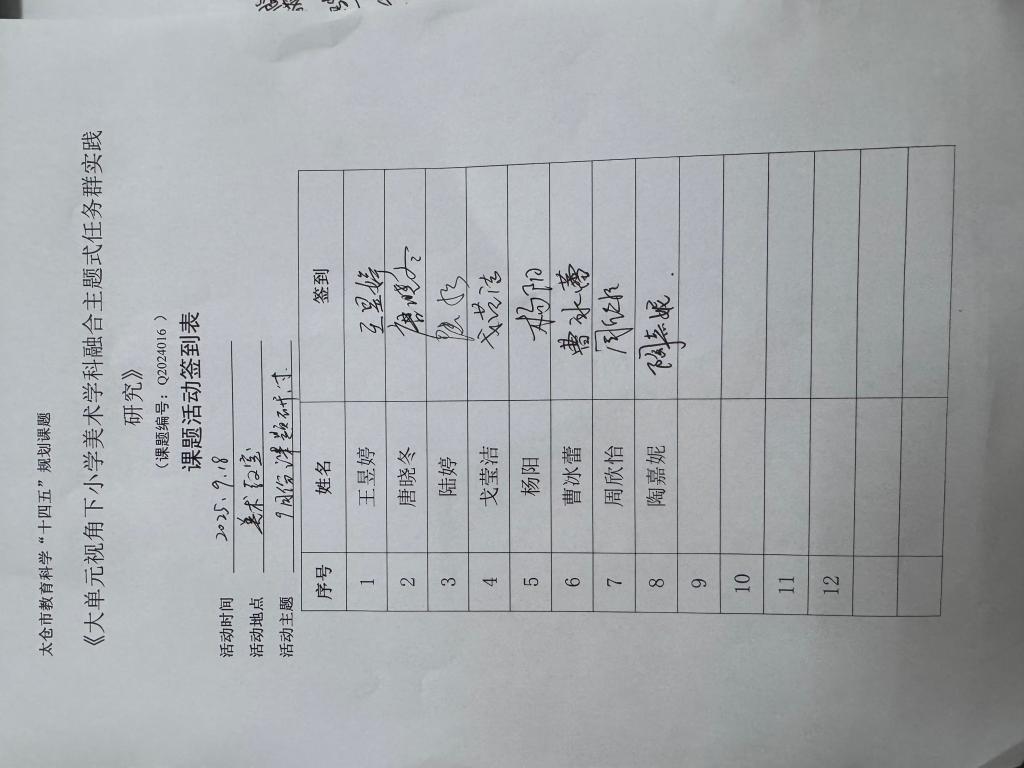 太仓市教育科学“十四五”规划课题
《大单元视角下小学美术学科融合主题式任务群实践
研究》
（课题编号：Q2024016 ）
课题活动签到表
活动时间 2025.9.18
活动地点 美术教室
活动主题 9月份课题研讨
序号 姓名 签到
1 王昱婷 王昱婷
2 唐晓冬 唐晓冬
3 陆婷 陆婷
4 戈莹洁 戈莹洁
5 杨阳 杨阳
6 曹冰蕾 曹冰蕾
7 周欣怡 周欣怡
8 陶嘉妮 陶嘉妮
9
10
11
12